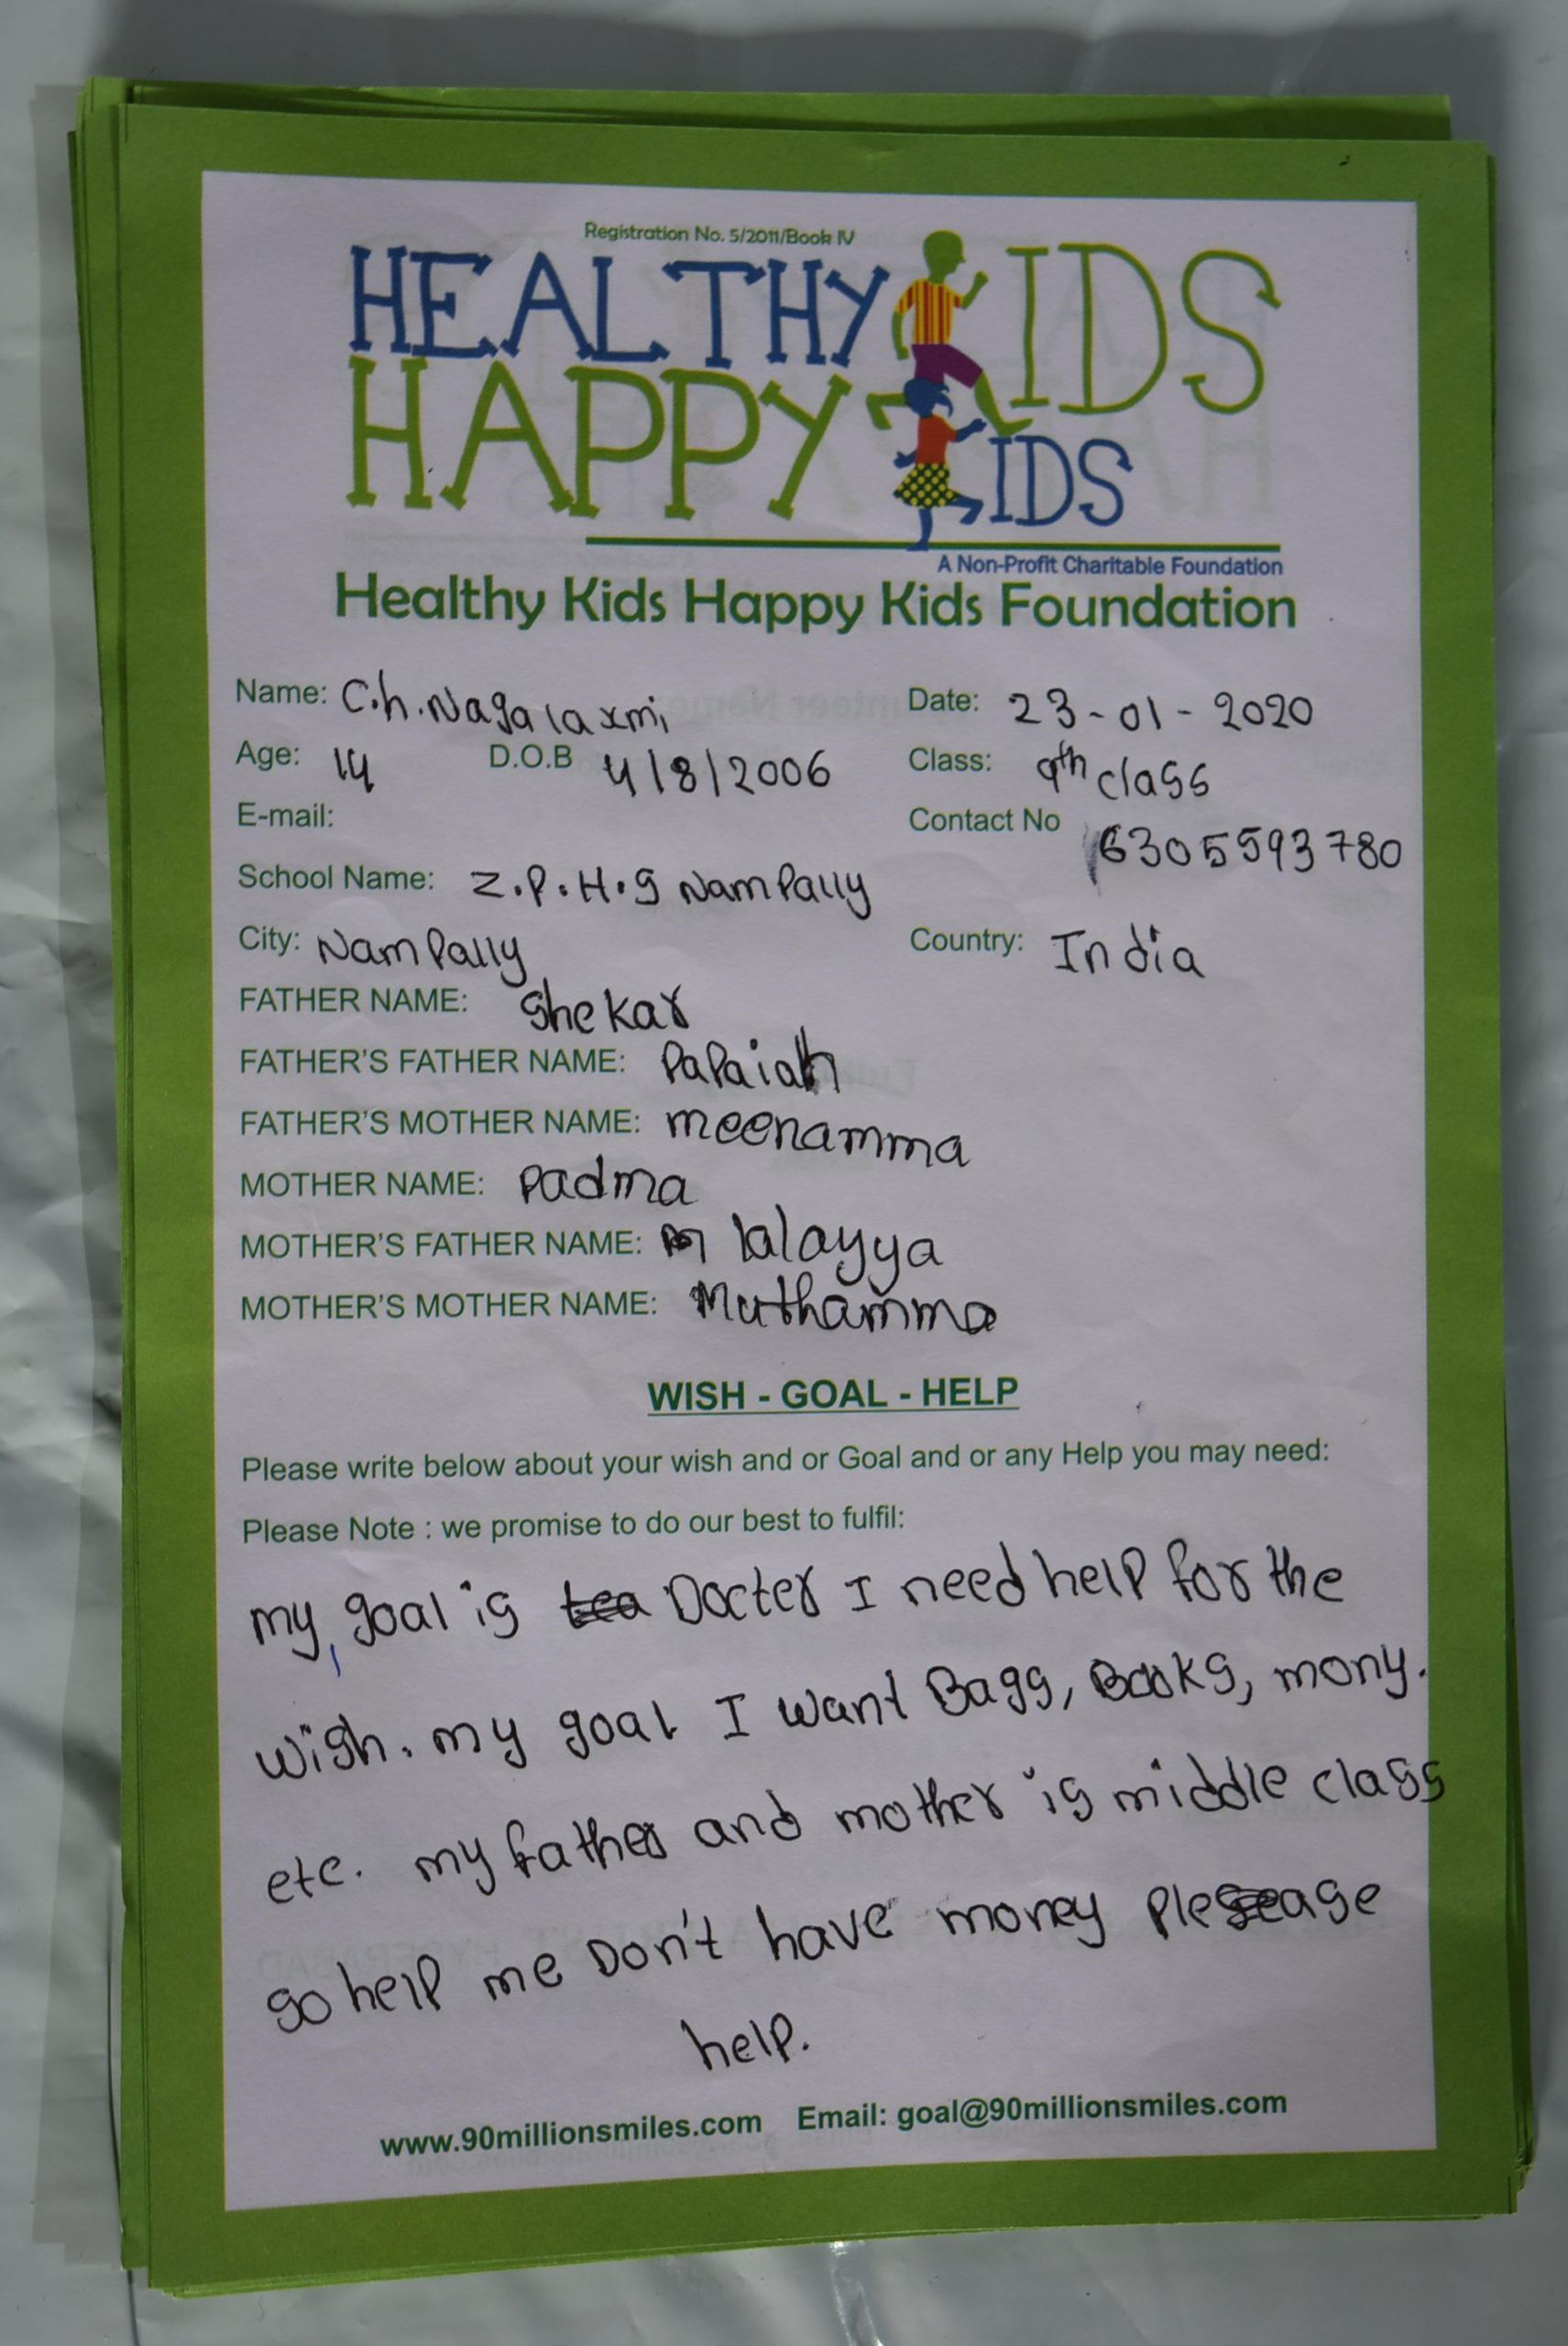 Registration No. 5/2011/Book IV
HEALTHY KIDS
HAPPY KIDS
A Non-Profit Charitable Foundation
Healthy Kids Happy Kids Foundation
Name: C.h.Nagalaxmi Date: 23-01-2020
Age: 14 D.O.B 4/8/2006 Class: 9th class
E-mail: Contact No 6305593780
School Name: Z.P.H.S Nampally
City: Nampally Country: India
FATHER NAME: Shekar
FATHER'S FATHER NAME: Papaiah
FATHER'S MOTHER NAME: meenamma
MOTHER NAME: Padma
MOTHER'S FATHER NAME: lalayya
MOTHER'S MOTHER NAME: Muthamma
WISH - GOAL - HELP
Please write below about your wish and or Goal and or any Help you may need:
Please Note : we promise to do our best to fulfil:
my goal is Docter I need help for the
wish. my goal I want Bags, Books, mony.
etc. my father and mother is middle class
so help me Don't have money please
help.
www.90millionsmiles.com Email: goal@90millionsmiles.com